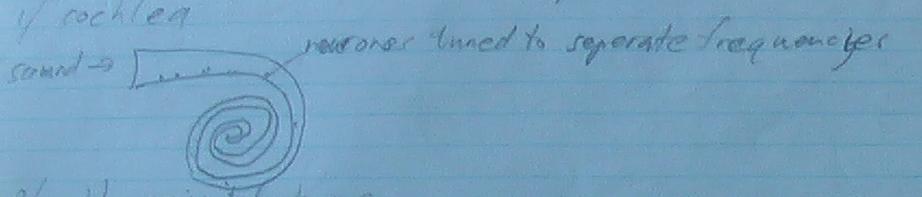 1/ cochlea
neurones tuned to seperate frequencies
sound →